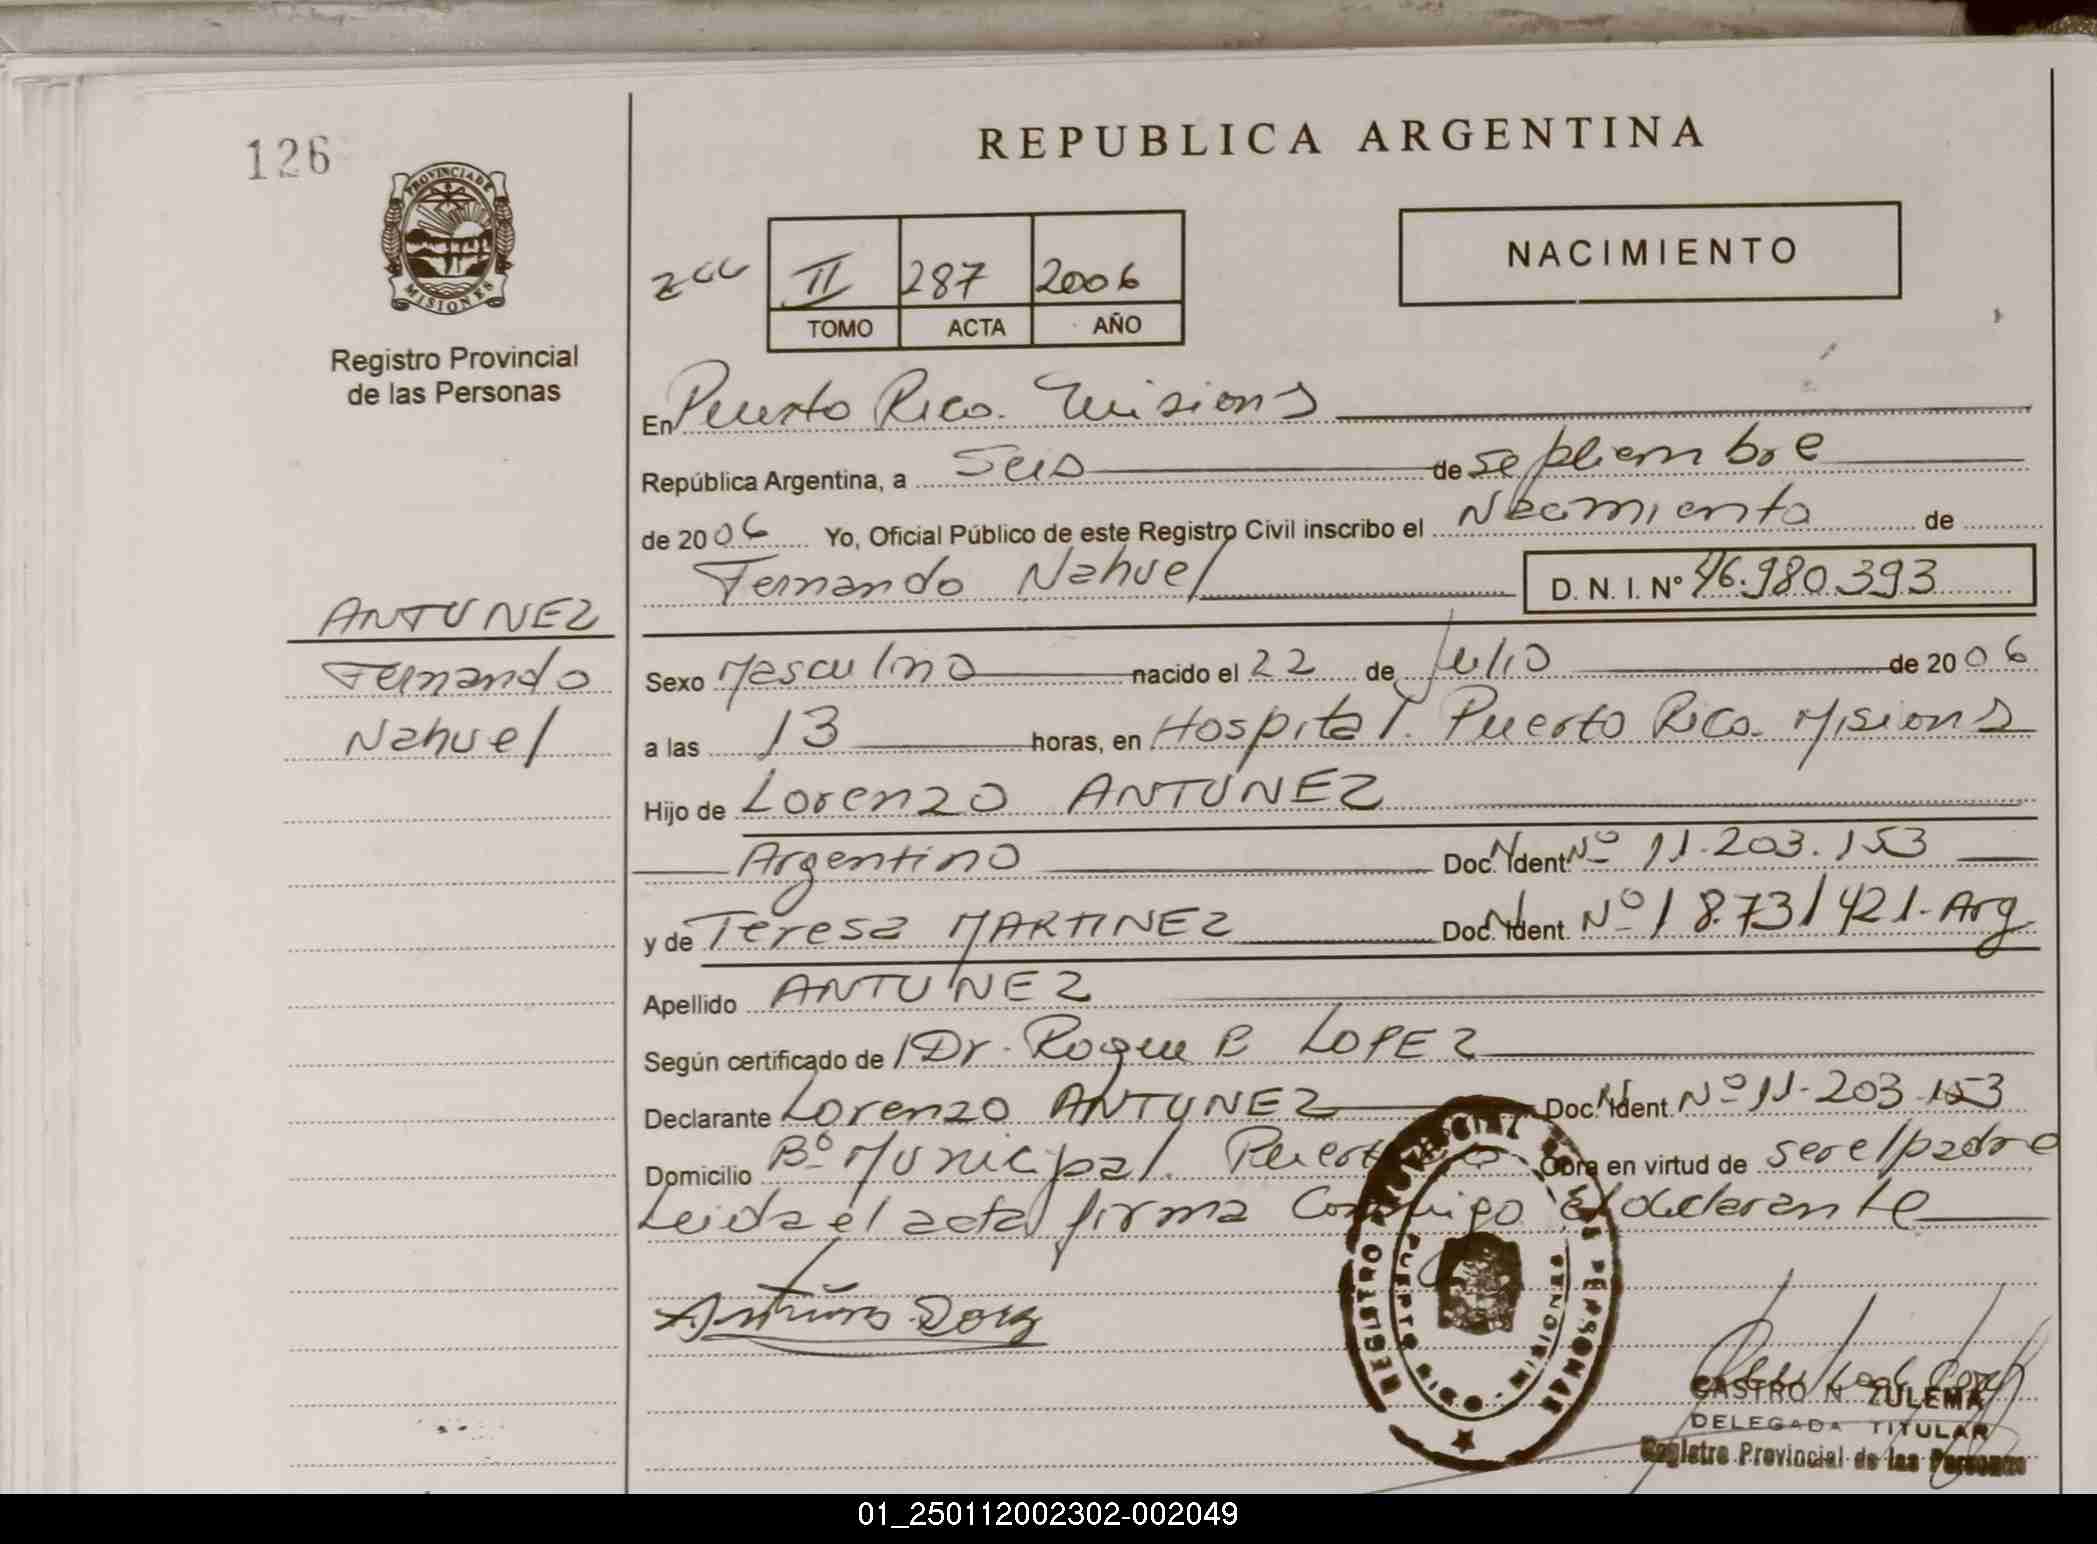 126
PROVINCIA DE
MISIONES
Registro Provincial
de las Personas
REPUBLICA ARGENTINA
NACIMIENTO
II 287 2006
TOMO ACTA AÑO
En Puerto Rico. Misiones
República Argentina, a Seis de septiembre
de 2006 Yo, Oficial Público de este Registro Civil inscribo el Nacimiento de
Fernando Nahuel D. N. I. Nº 46.980.393
ANTUNEZ
Fernando
Nahuel
Sexo Masculino nacido el 22 de Julio de 2006
a las 13 horas, en Hospital. Puerto Rico. Misiones
Hijo de Lorenzo ANTUNEZ
Argentino Doc. Ident. Nº 11.203.153
y de Teresa MARTINEZ Doc. Ident. Nº 18.731421-Arg
Apellido ANTUNEZ
Según certificado de Dr. Roque B LOPEZ
Declarante Lorenzo ANTUNEZ Doc. Ident. Nº 11.203.153
Domicilio Bº Municipal. Puerto Obra en virtud de ser el padre
Leida el acta firma Conmigo El declarante
REGISTRO PROVINCIAL DE LAS PERSONAS
PUERTO RICO - MISIONES
CASTRO N ZULEMA
DELEGADA TITULAR
Registro Provincial de las Personas
01_250112002302-002049